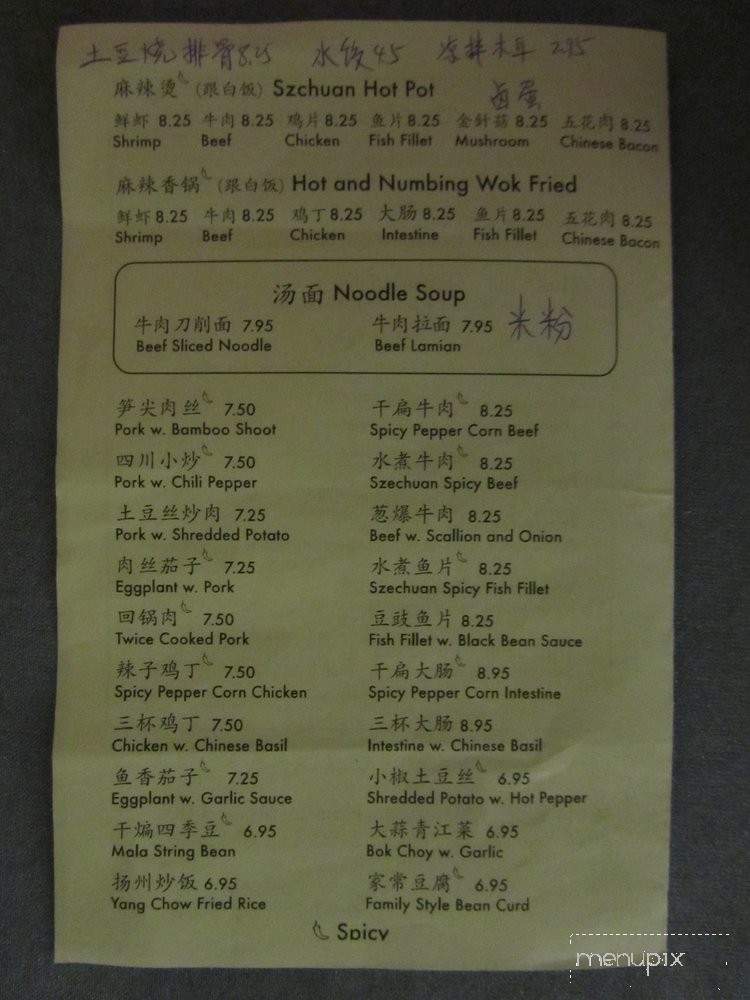 土豆烧排骨8.25 水饺45 凉拌木耳 2.95
麻辣烫 (跟白饭) Szchuan Hot Pot 卤蛋
鲜虾 8.25 牛肉 8.25 鸡片 8.25 鱼片 8.25 金針菇 8.25 五花肉 8.25
Shrimp Beef Chicken Fish Fillet Mushroom Chinese Bacon
麻辣香锅 (跟白饭) Hot and Numbing Wok Fried
鲜虾 8.25 牛肉 8.25 鸡丁 8.25 大肠 8.25 鱼片 8.25 五花肉 8.25
Shrimp Beef Chicken Intestine Fish Fillet Chinese Bacon
汤面 Noodle Soup
牛肉刀削面 7.95 牛肉拉面 7.95 米粉
Beef Sliced Noodle Beef Lamian
笋尖肉丝 7.50 干扁牛肉 8.25
Pork w. Bamboo Shoot Spicy Pepper Corn Beef
四川小炒 7.50 水煮牛肉 8.25
Pork w. Chili Pepper Szechuan Spicy Beef
土豆丝炒肉 7.25 葱爆牛肉 8.25
Pork w. Shredded Potato Beef w. Scallion and Onion
肉丝茄子 7.25 水煮鱼片 8.25
Eggplant w. Pork Szechuan Spicy Fish Fillet
回锅肉 7.50 豆豉鱼片 8.25
Twice Cooked Pork Fish Fillet w. Black Bean Sauce
辣子鸡丁 7.50 干扁大肠 8.95
Spicy Pepper Corn Chicken Spicy Pepper Corn Intestine
三杯鸡丁 7.50 三杯大肠 8.95
Chicken w. Chinese Basil Intestine w. Chinese Basil
鱼香茄子 7.25 小椒土豆丝 6.95
Eggplant w. Garlic Sauce Shredded Potato w. Hot Pepper
干煸四季豆 6.95 大蒜青江菜 6.95
Mala String Bean Bok Choy w. Garlic
扬州炒饭 6.95 家常豆腐 6.95
Yang Chow Fried Rice Family Style Bean Curd
Spicy
menupix